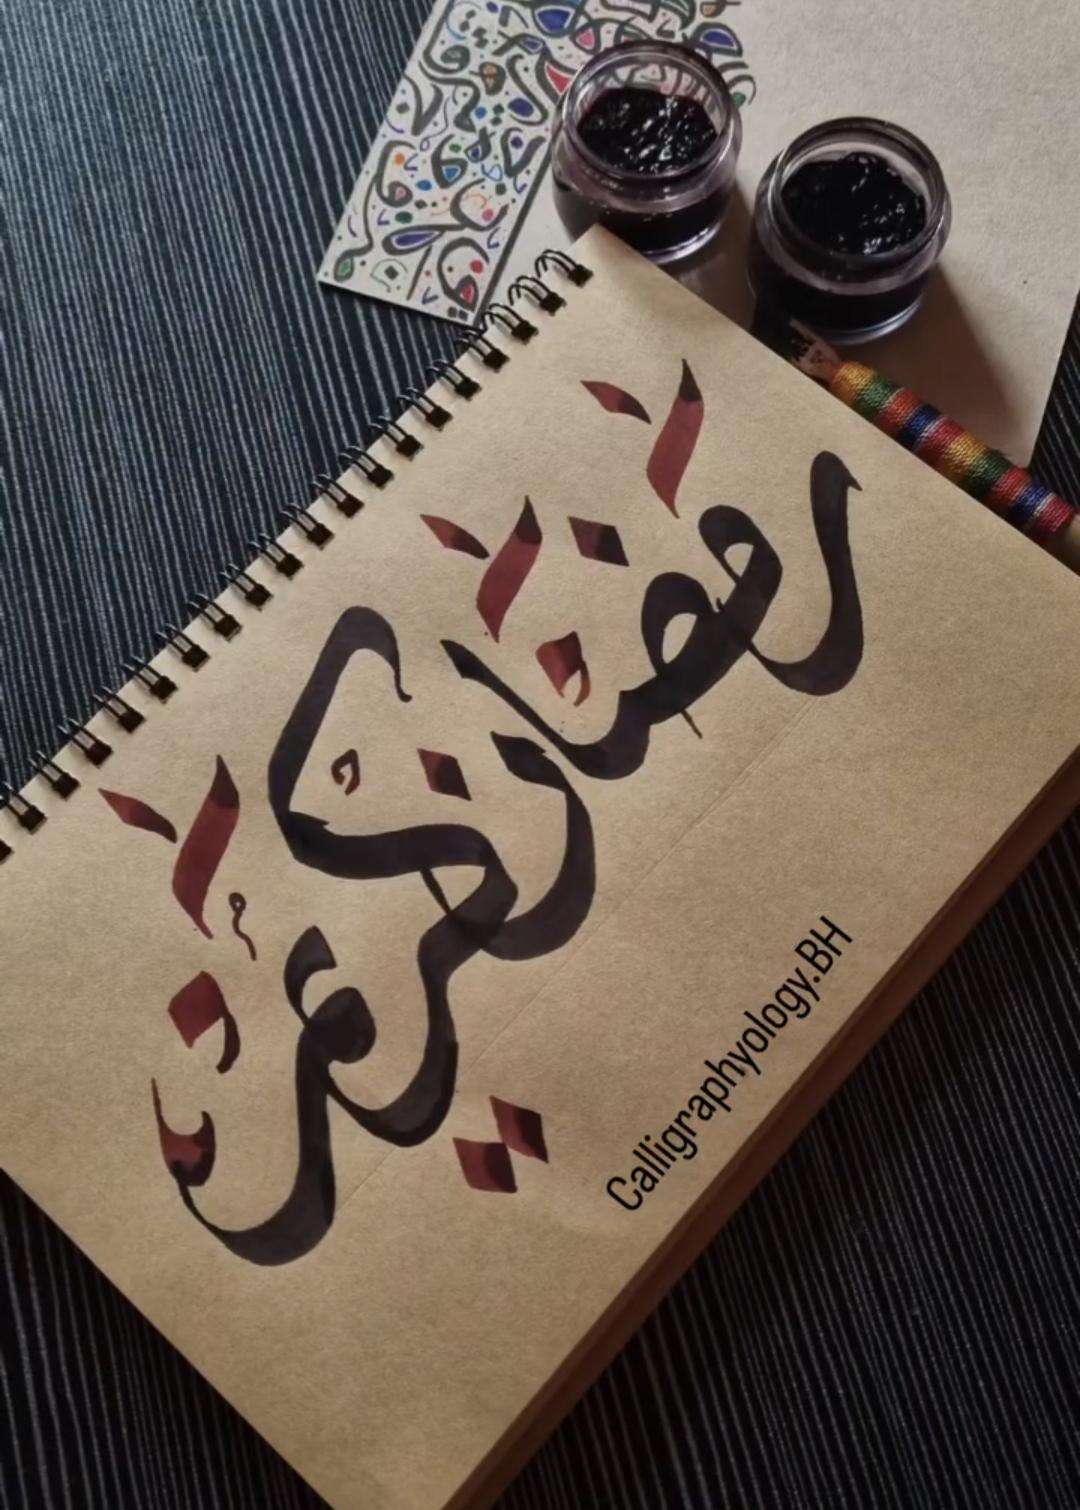 رمضان كريم
Calligraphyology.BH